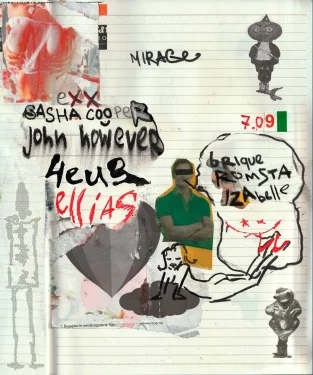 MIRAGE
exx
SASHA COOPER
john however
4euB
ellias
7.09
brique
ROMSTA
IZAbelle